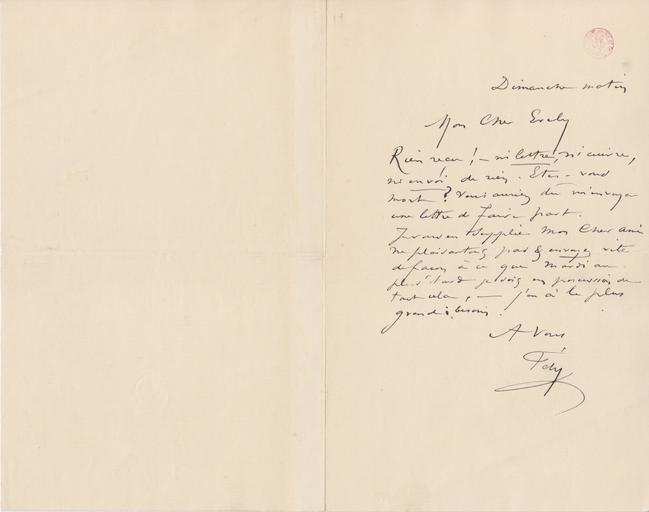 Dimanche matin
Mon Cher Evely
Rien reçu ! – ni lettre, ni cuivre,
ni envoi de rien. Etes-vous
mort ? Vous auriez dû m'envoyer
une lettre de faire part.
Je vous en supplie Mon Cher ami
ne plaisantons pas & envoyez vite
de façon à ce que mardi au
plus tard je sois en possession de
tout cela, – j'en ai le plus
grand besoin.
A Vous
Fély